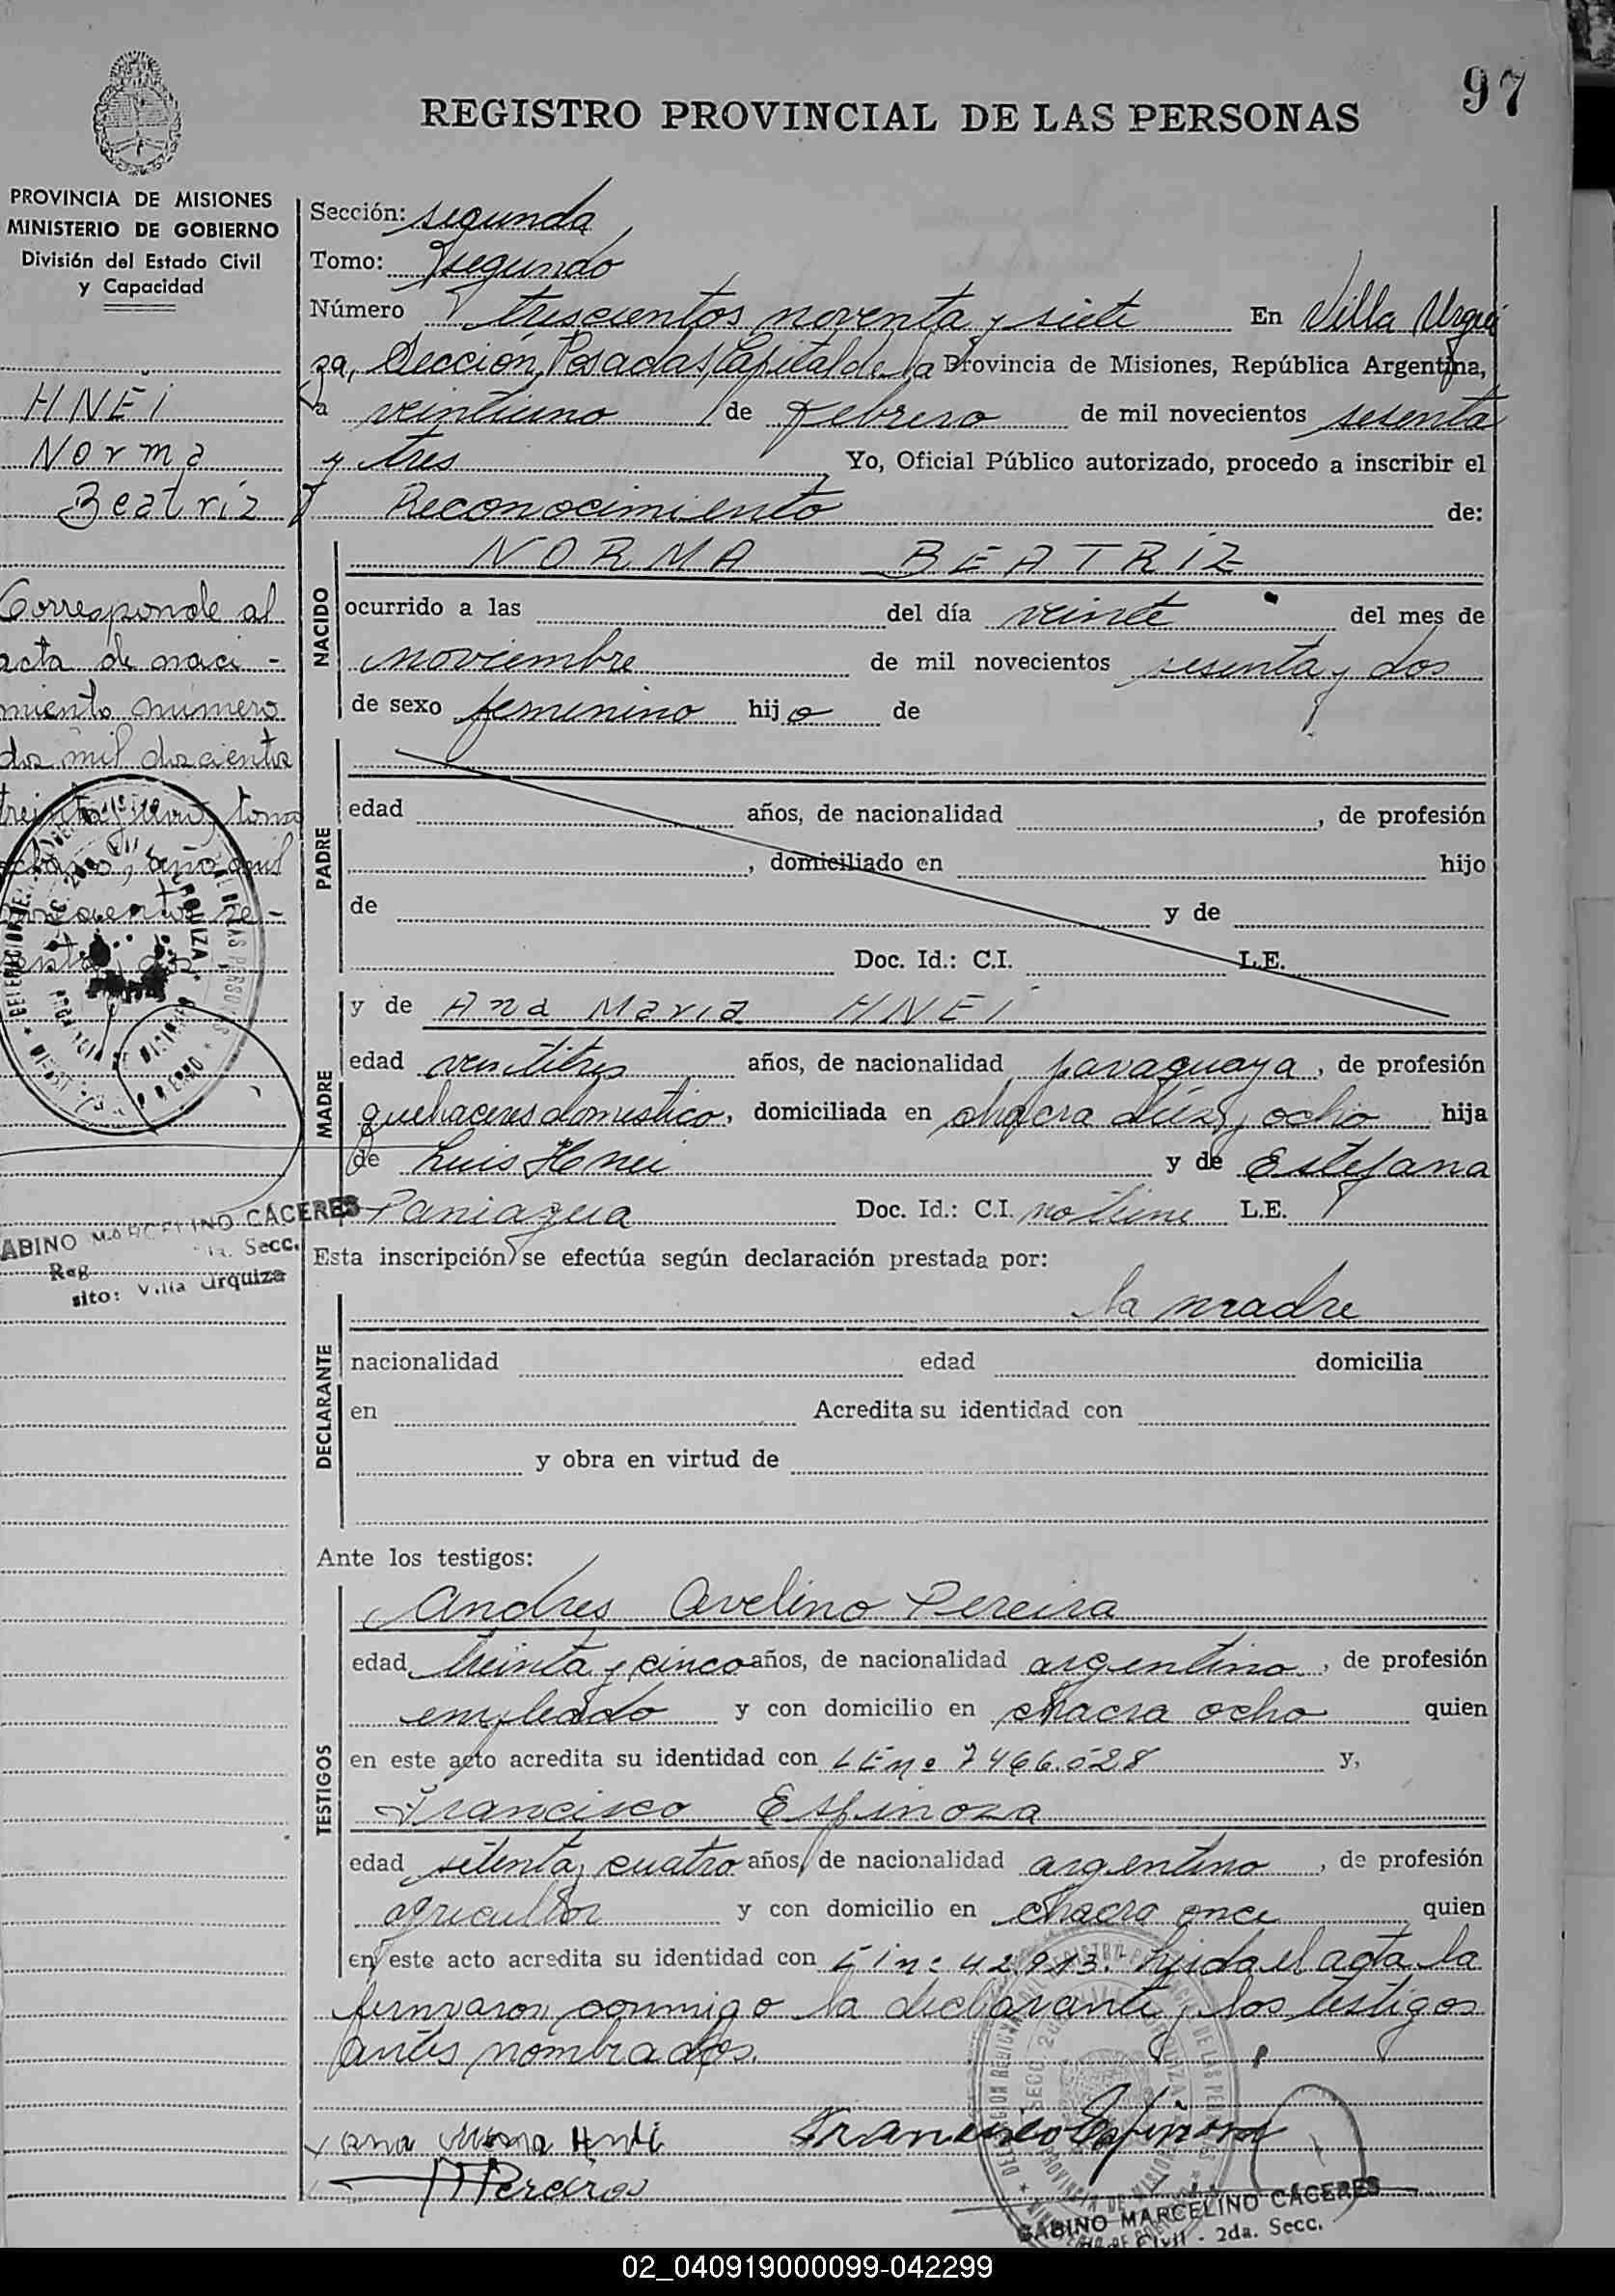 97
REGISTRO PROVINCIAL DE LAS PERSONAS
PROVINCIA DE MISIONES
MINISTERIO DE GOBIERNO
División del Estado Civil
y Capacidad
HNEI
Norma
Beatriz
Corresponde al
acta de naci -
miento número
dos mil doscientos
treinta y tomo
año mil
GABINO MARCELINO CACERES
Secc.
Reg
sito: Villa Urquiza
Sección: segunda
Tomo: segundo
Número trescientos noventa y siete En Villa Urqui
za, Sección Posadas, Capital de la Provincia de Misiones, República Argentina,
a veintiuno de febrero de mil novecientos sesenta
y tres Yo, Oficial Público autorizado, procedo a inscribir el
Reconocimiento de:
NACIDO
NORMA BEATRIZ
ocurrido a las del día veinte del mes de
noviembre de mil novecientos sesenta y dos
de sexo femenino hijo de
PADRE
edad años, de nacionalidad , de profesión
, domiciliado en hijo
de y de
Doc. Id.: C.I. L.E.
MADRE
y de Ana Maria HNEI
edad ventitres años, de nacionalidad paraguaya, de profesión
quehaceres domestico, domiciliada en chacra diez y ocho hija
de Luis Hnei y de Estefana
Paniagua Doc. Id.: C.I. no tiene L.E.
Esta inscripción se efectúa según declaración prestada por:
DECLARANTE
la madre
nacionalidad edad domicilia
en Acredita su identidad con
y obra en virtud de
Ante los testigos:
TESTIGOS
Andres Avelino Pereira
edad treinta y cinco años, de nacionalidad argentino, de profesión
empleado y con domicilio en chacra ocho quien
en este acto acredita su identidad con LE nº 7466.528 y,
Francisco Espinoza
edad setenta y cuatro años, de nacionalidad argentino, de profesión
agricultor y con domicilio en chacra once quien
en este acto acredita su identidad con nº 42.913. Leida el acta la
firmaron conmigo la declarante y los testigos
antes nombrados.
ana Maria Hnei Francisco Espinosa
Pereira
GABINO MARCELINO CACERES
Civil - 2da. Secc.
02_040919000099-042299